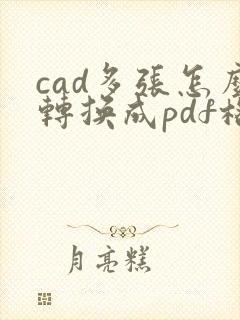 cad多張怎麼
轉換成pdf格
月亮糕